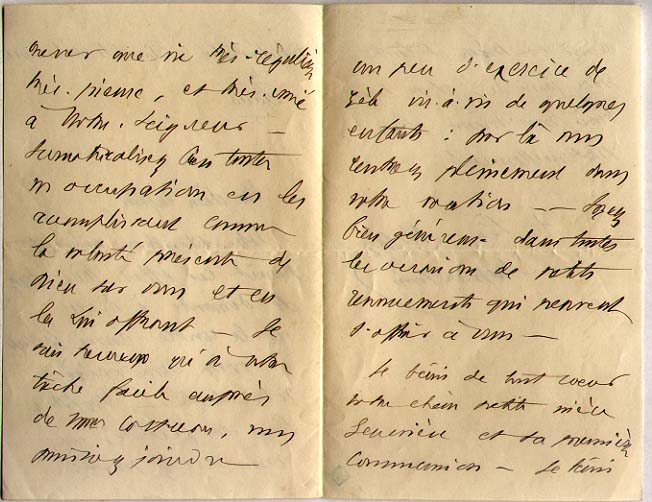 mener une vie très-régulière
très-pieuse, et très-unie
à Notre-Seigneur —
surnaturalisez bien toutes
vos occupations en les
accomplissant comme
la volonté présente de
Dieu sur vous et en
les Lui offrant — Je
suis heureux qu'à votre
tâche facile auprès
de Mme, vous
puissiez joindre
un peu d'exercice de
zèle vis-à-vis de quelques
enfants : par là vous
rentrez pleinement dans
votre vocation — Soyez
bien généreuse dans toutes
les occasions de petits
renoncements qui peuvent
s'offrir à vous —
Je bénis de tout coeur
votre chère petite nièce
et sa première
Communion — Je bénis